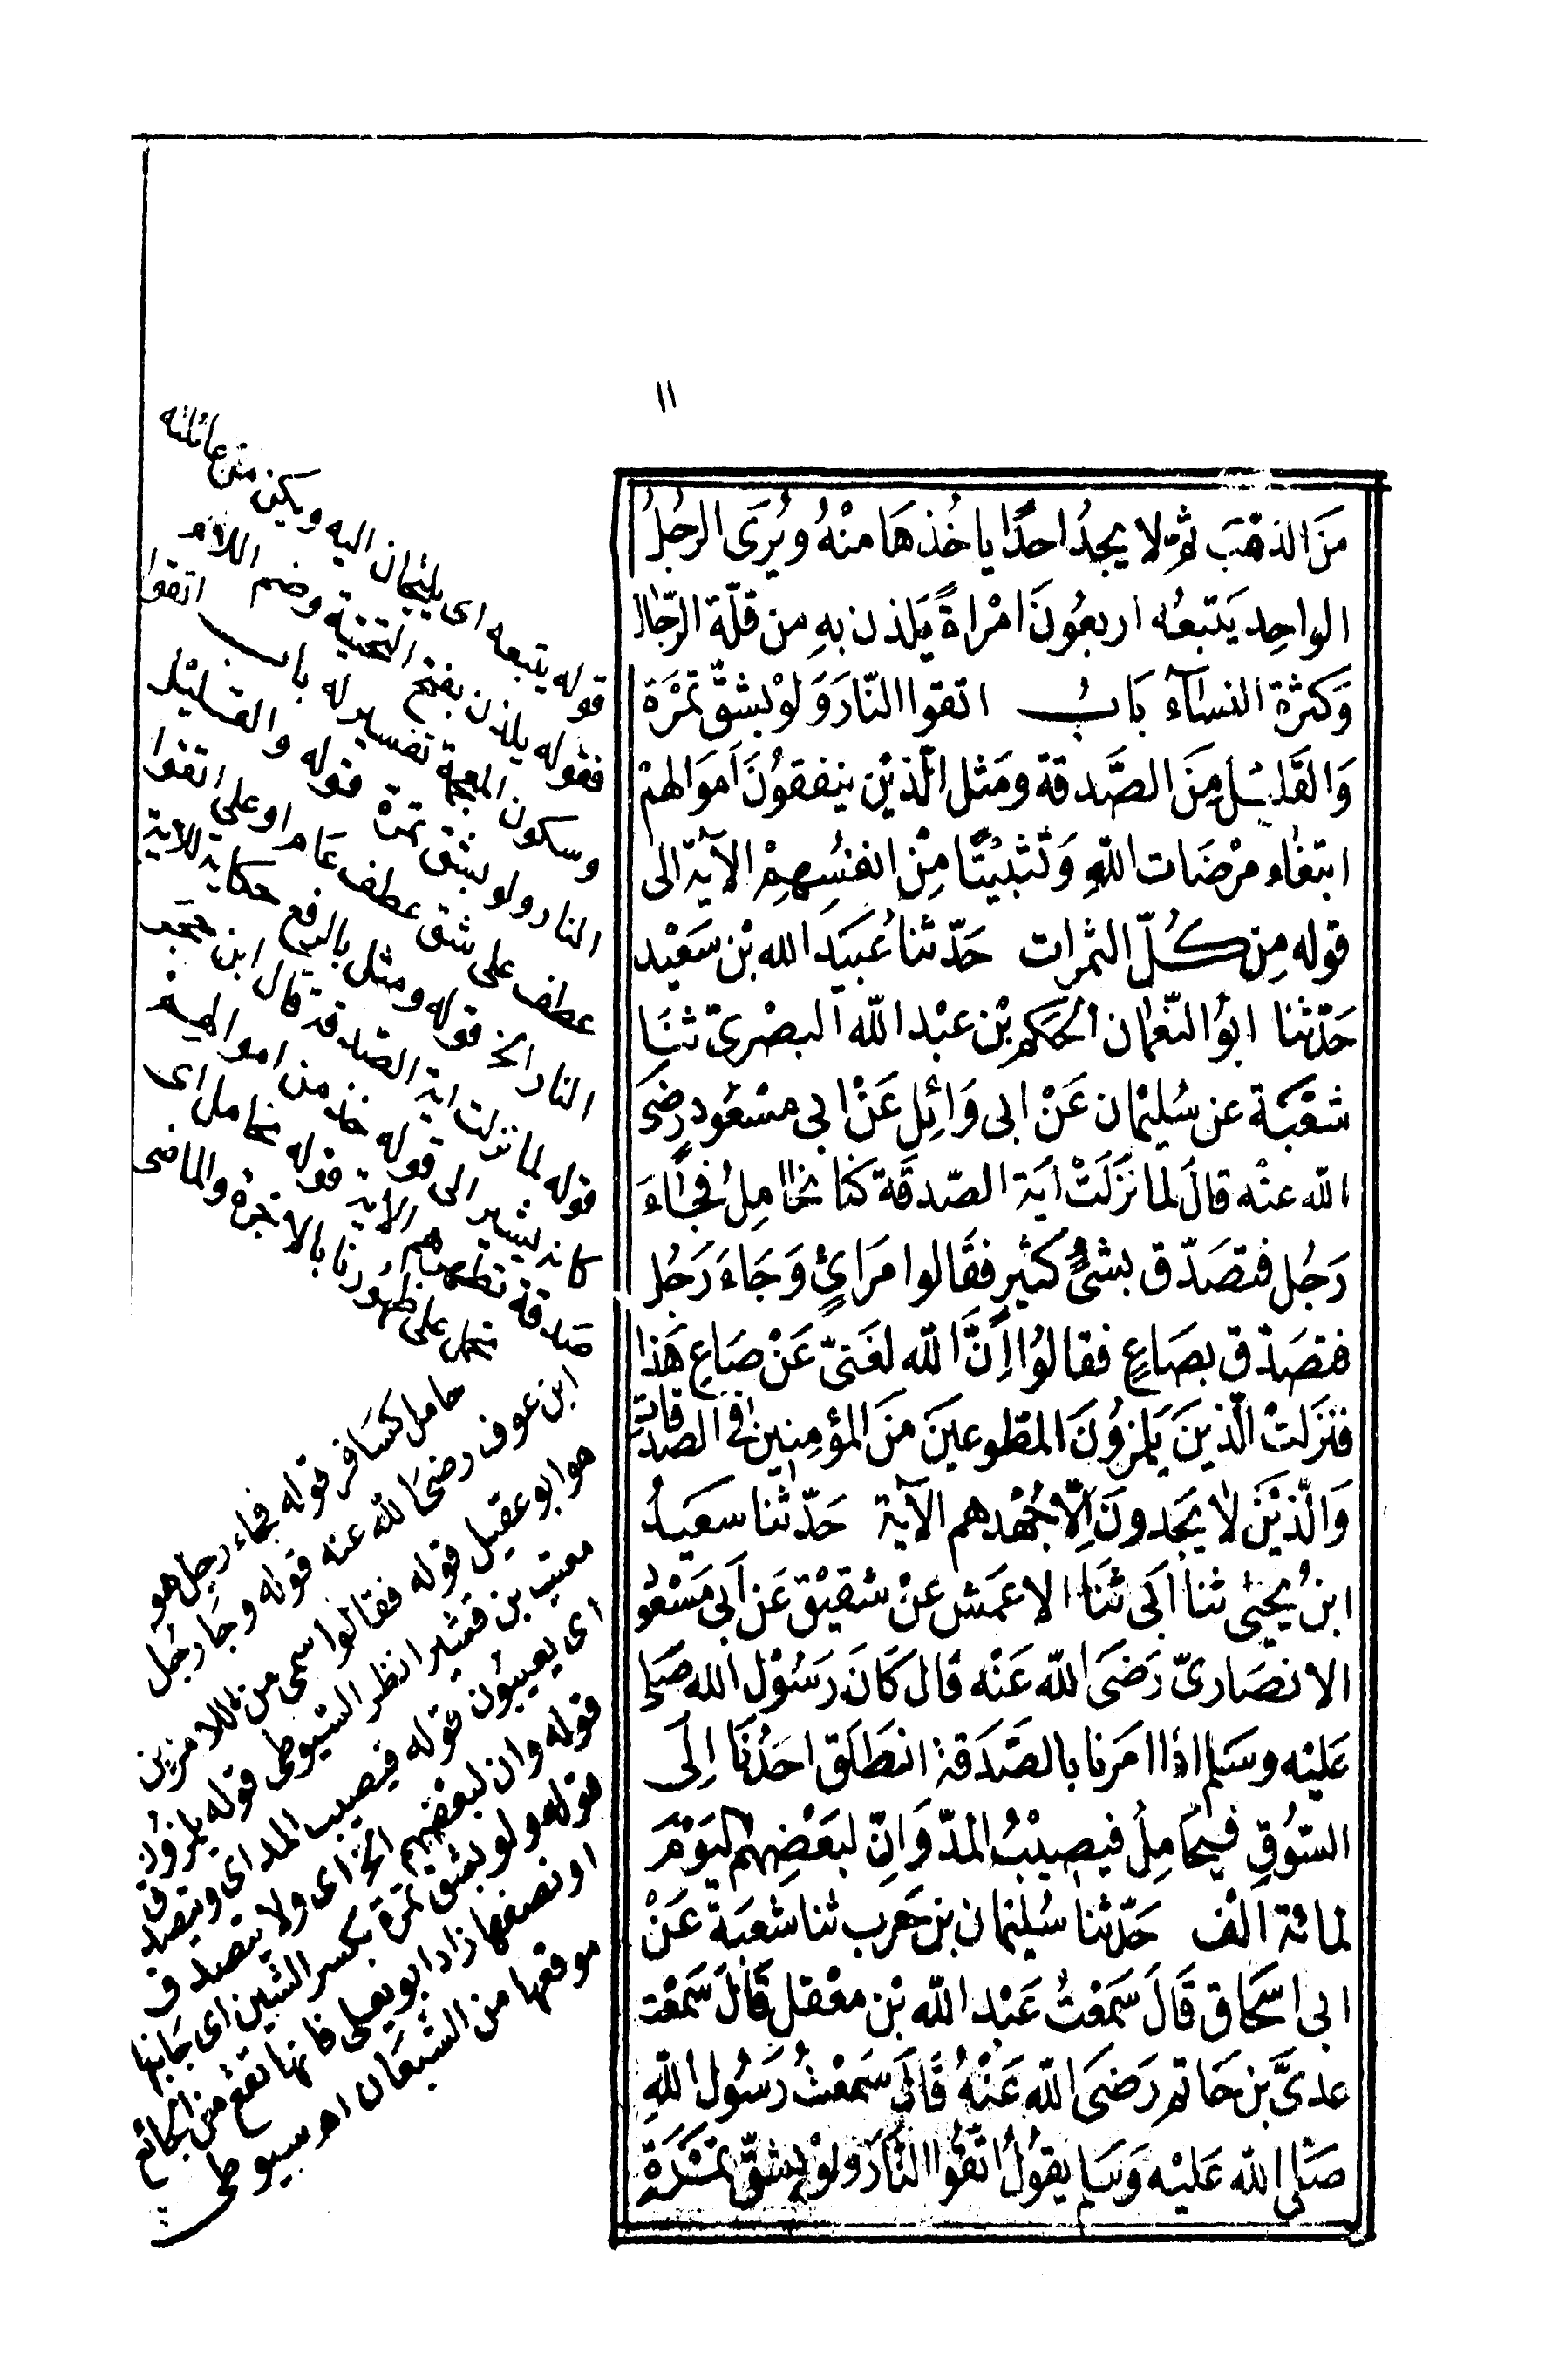 ١١
مِنَ الذهَبَ ثمّ لا يجدُ احدًا ياخُذهَا منْهُ ويُرَى الرجُلُ
الواحِد يَتبعُه اربعُونَ امْراةً يَلذن بهِ مِن قلّة الرّجال
وَكثرة النسَآء بَابُ اتقوا النّارَ وَلوْ بشقّ تمْرَة
وَالقَليْل مِنَ الصَّدقة ومَثل الّذيْن ينفقوُنَ اَموَالهمْ
ابتغاء مرْضَات اللهِ وَتثبيْتًا مِنْ انفسُهِمْ الآية الى
قوله مِن كُلّ الثمرات حَدّثنا عُبَيَد الله بْن سَعيْد
حَدّثنا ابوُ النّعمان الحَكم بْن عبْد الله البصْرىّ ثنَا
شعْبَة عن سُليْمان عَنْ ابى وَائِل عَنْ ابى مسْعُود رضىَ
الله عنْه قالَ لما نَزَلَتْ اَيَة الصّدقَة كنا نحَامِلُ فجَاءَ
رَجُل فتصَدّق بشىْءٍ كثيرٍ فقَالوا مرَائٍ وَجَاءَ رَجُل
فتصَدّق بصَاعٍ فقالوُا اِنَّ الله لغَنىّ عَنْ صَاعِ هَذا
فنزَلتْ الّذينَ يَلمزوُنَ المطّوعينَ منَ المؤمِنينَ فى الصّدقات
وَالّذيْنَ لاَ يَجدونَ اِلّا جُهْدهم الآية حَدّثنا سَعيَدُ
ابنُ يحْيىٰ ثنا اَبى ثنَا الاعمَش عَنْ شقيْق عَن اَبى مَسْعُود
الانصَارىّ رَضىَ الله عَنْه قال كَانَ رَسُوْل الله صَلى
عَليْه وسَلم اذا امَرنا بالصَّدَقة انطَلَق احَدُنَا اِلَى
السّوُقِ فيحَامِلُ فيصِيْبُ المدّ وَانّ لبَعْضِهِمْ اليَوْمَ
لمائة الْف حَدّثنا سُليْمان بن حَرب ثنا شعبَة عَنْ
ابى اسحَاق قَالَ سَمعْتُ عَبْد الله بْن معْقل قَالَ سَمعْت
عدىَّ بن حَاتمٍ رَضىَ الله عَنْهُ قَالَ سَمعْتُ رَسُول اللهِ
صَلى الله عَليْه وَسَلم يقوُلُ اتّقوُا النّارَ ولوْ بِشقّ تمْرَةٍ
قوله يتبعه اى يلتجأن اليه ويكن من عائلته
فقوله يلذن بفتح التحتية وضم اللام
وسكون المعجمة تفسير له باب اتقوا
النار ولو بشق تمرة قوله والقليل
عطف على شق عطف عام او على اتقوا
النار الخ قوله ومثل بالرفع حكاية للاية
قوله لما نزلت اية الصدقة قال ابن حجَر
كانه يشير الى قوله خذ من اموالهم
صَدقة تطهرهم الاية قوله نحامل اى
نحمل على ظهُورنا بالاجرة والماضى
حامل كسَافر قوله فجاء رجل هو
ابن عوف رضى الله عنه قوله وجا رجُل
هو ابو عقيل قوله فقالوا سمى من اللامزين
معتب بن قشير انظر السيوطى قوله يلمزون
اى يعيبُون قوله فيصيب المد اى ويتصدق
قوله وان لبعضهم الخ اى ولا يتصدق
قوله ولو بشق تمرة بكسر الشين اى جَانبها
او نصفها زاد ابو يعلى فانها تقع من الجائع
موقعها من الشبعَان اھ سيوطى